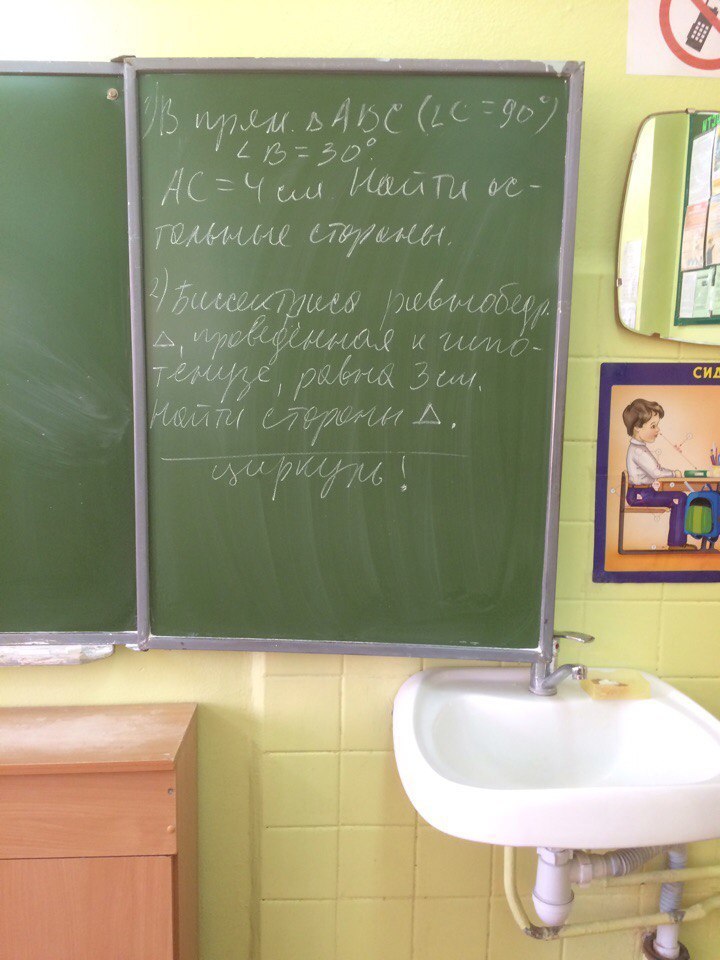 1) В прям. △ ABC (∠C = 90°)
∠B = 30°.
AC = 4 см. Найти ос-
тальные стороны.
2) Биссектриса равнобедр.
△, проведённая к гипо-
тенузе, равна 3 см.
Найти стороны △.
циркуль!
СИД